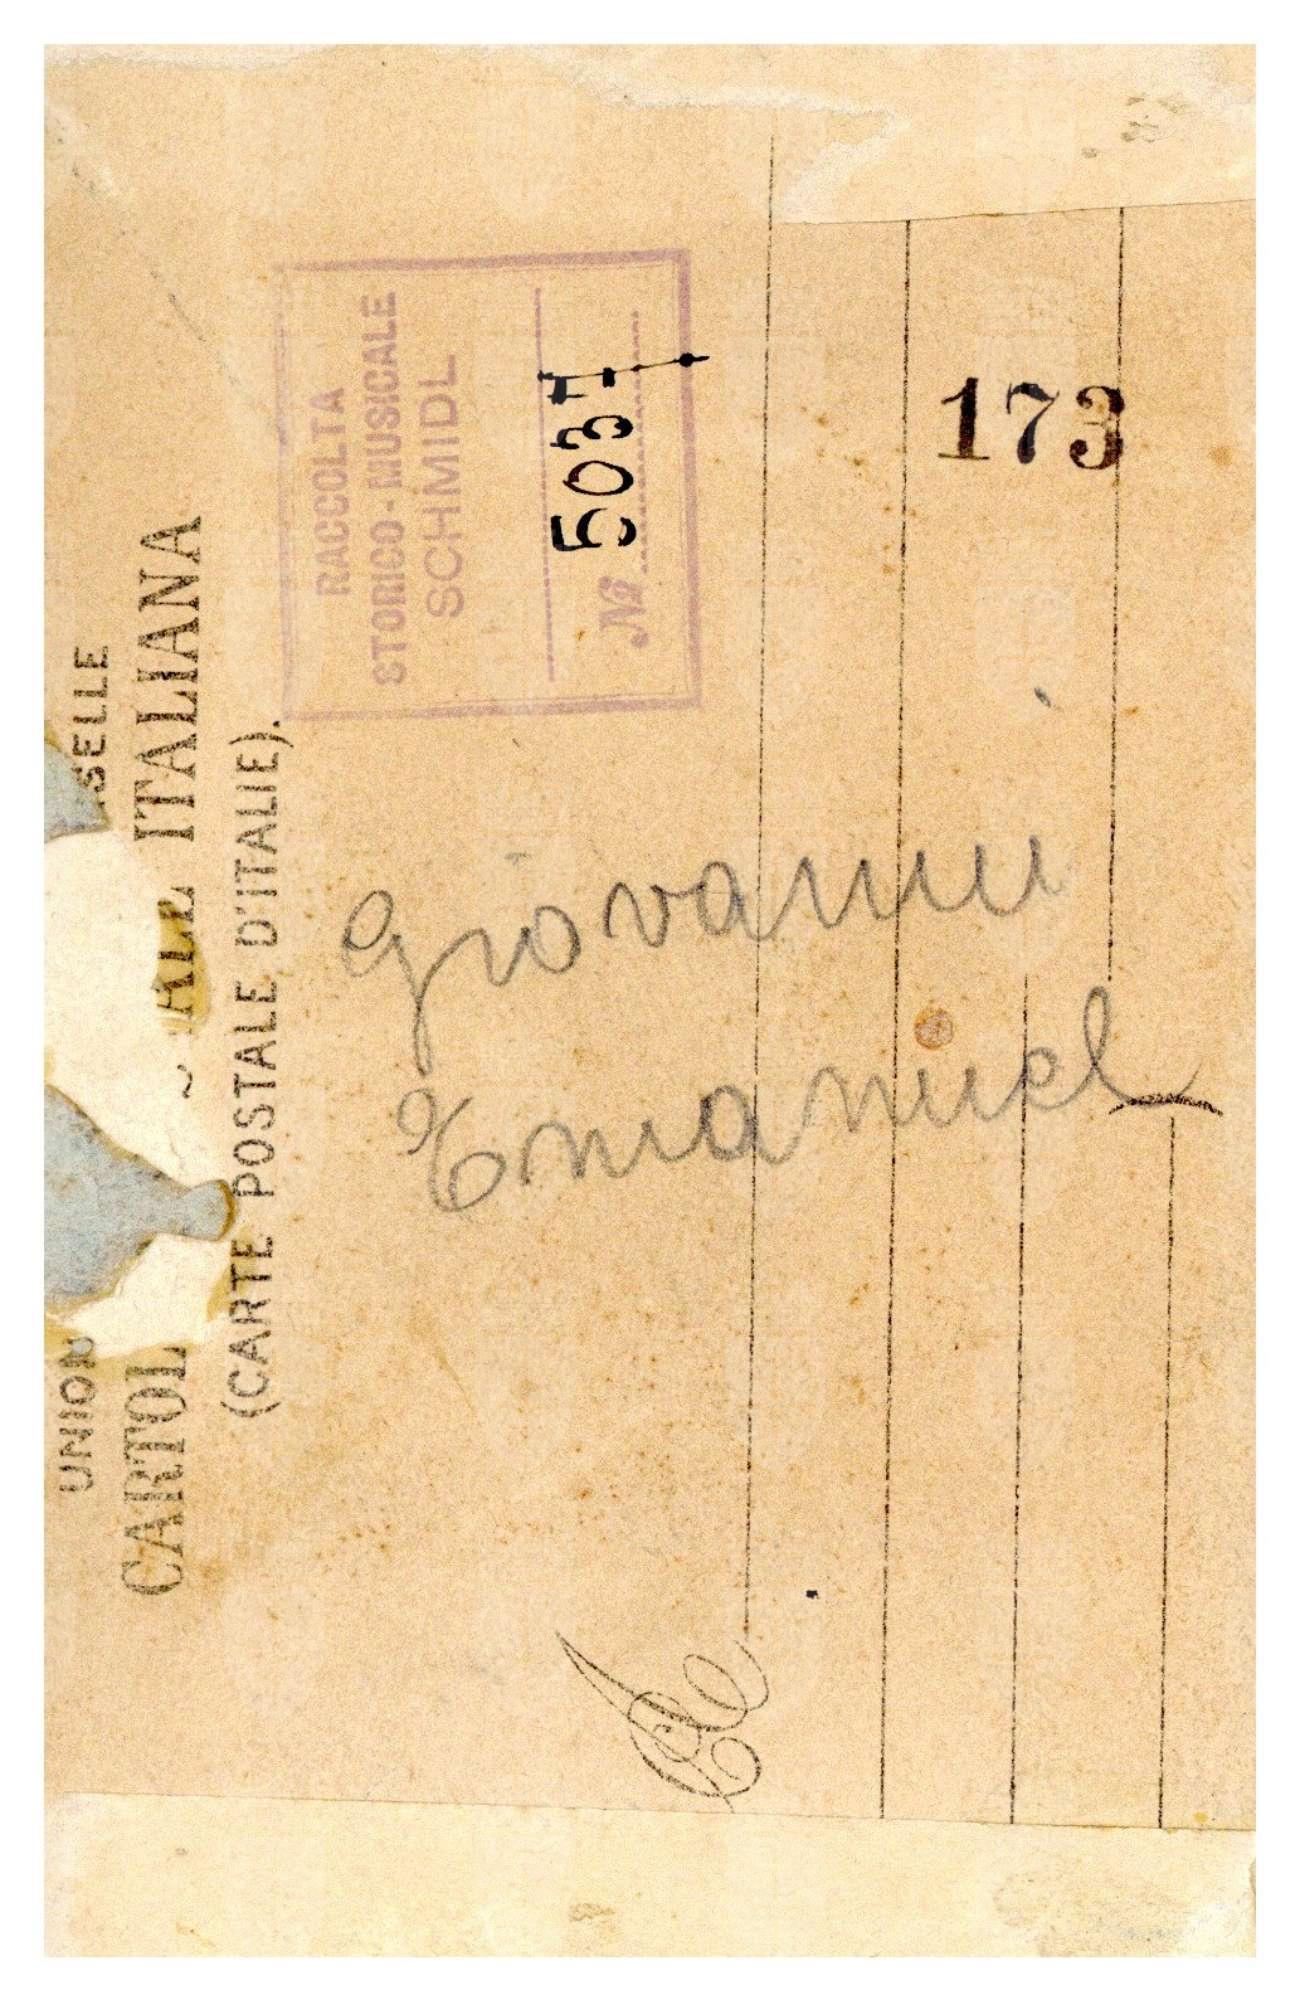 UNION SELLE
CARTOL ALE ITALIANA
(CARTE POSTALE D'ITALIE).
RACCOLTA
STORICO-MUSICALE
SCHMIDL
№ 5031
173
Giovanni
Emanuel